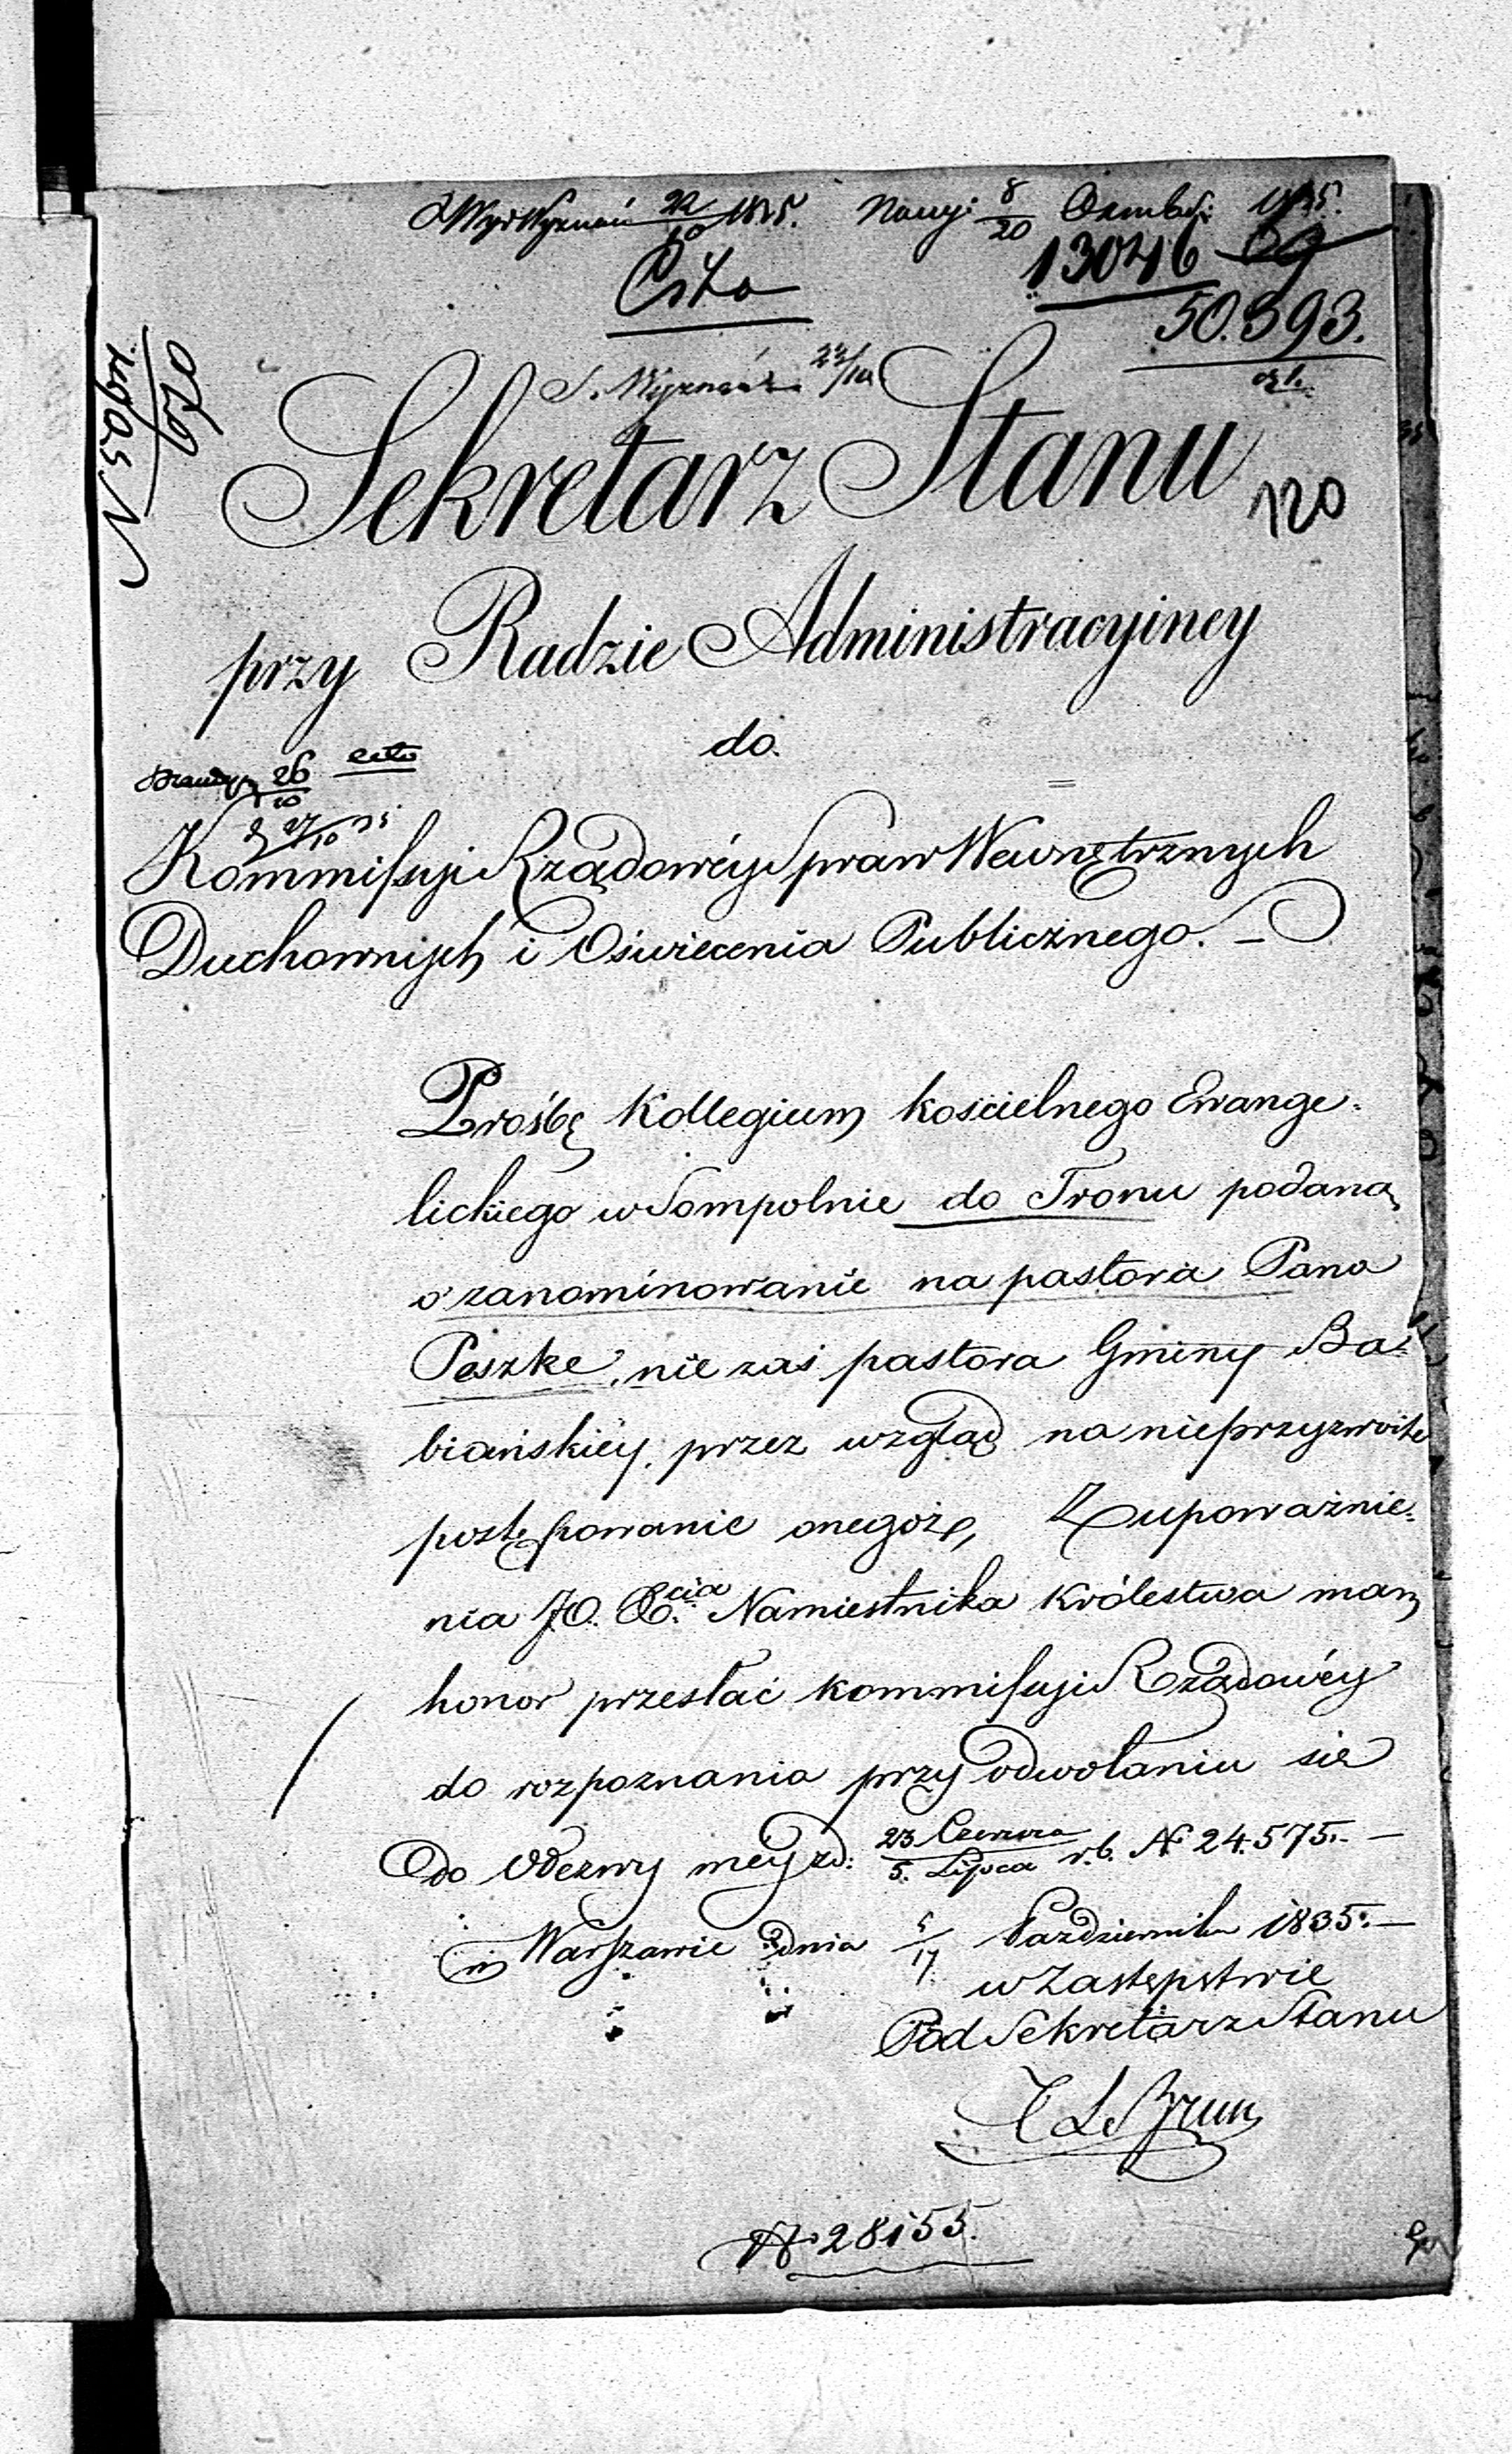 22/10 1835. 8/20 1835.
13046
Cito
50.393.
S. Wyznań
Sekretarz Stanu
120
przy Radzie Administracyiney
do
26/10 cito
27/10
Kommissyi Rządowéy Spraw Wewnętrznych
Duchownych i Oświecenia Publicznego. –
Prośbę Kollegium kościelnego Ewange-
lickiego w Sompolnie do Tronu podaną
o zanominowanie na pastora Pana
Peszke, nie zaś pastora Gminy Ba-
biańskiéy, przez wzgląd na nieprzyzwoite
postępowanie onegoż, Z upoważnie-
nia JO. Xcia Namiestnika Królestwa mam
honor przesłać kommissyi Rządowéy
do rozpoznania przy odwołaniu się
do Odezwy méy zd: 23 Czerwca/5. Lipca r.b. N 24.575. –
w Warszawie dnia 5/17 Października 1835. –
w Zastępstwie
Pod Sekretarz Stanu
Le Brun
N 28155.